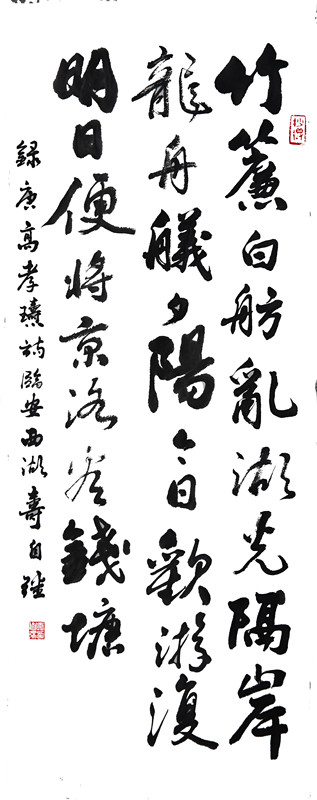 竹簾白舫亂湖光隔岸
龍舟艤夕陽今日歡游復
明日便將京洛看錢塘
錄唐高孝璹詩臨安西湖壽自